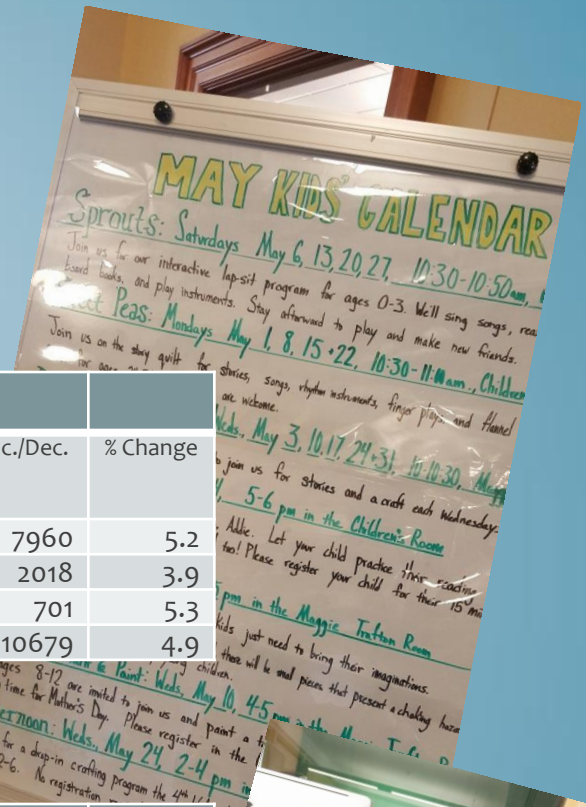 MAY KIDS' CALENDAR
Sprouts: Saturdays May 6, 13, 20, 27, 10:30-10:50am,
Join us for our interactive lap-sit program for ages 0-3. We'll sing songs,
board books, and play instruments. Stay afterward to play and make new friends.
Peas: Mondays May 1, 8, 15 +22, 10:30-11:00am.,
Join us on the story quilt for stories, songs, rhythm instruments, finger plays and flannel
are welcome.
Weds., May 3, 10, 17, 24+31, 10-10:30,
join us for stories and a craft each Wednesday.
5-6 pm in the Children's Room
Addie. Let your child practice their reading
too! Please register your child for their 15 min
pm in the Maggie Trafton Room
kids just need to bring their imaginations.
there will be small pieces that present a choking
children.
& Paint: Weds, May 10, 4-5 pm
8-12 are invited to join us and paint a
time for Mother's Day. Please register in the
Weds., May 24, 2-4 pm
for a drop-in crafting program the 4th
2-6. No registration
c./Dec. % Change
7960 5.2
2018 3.9
701 5.3
10679 4.9